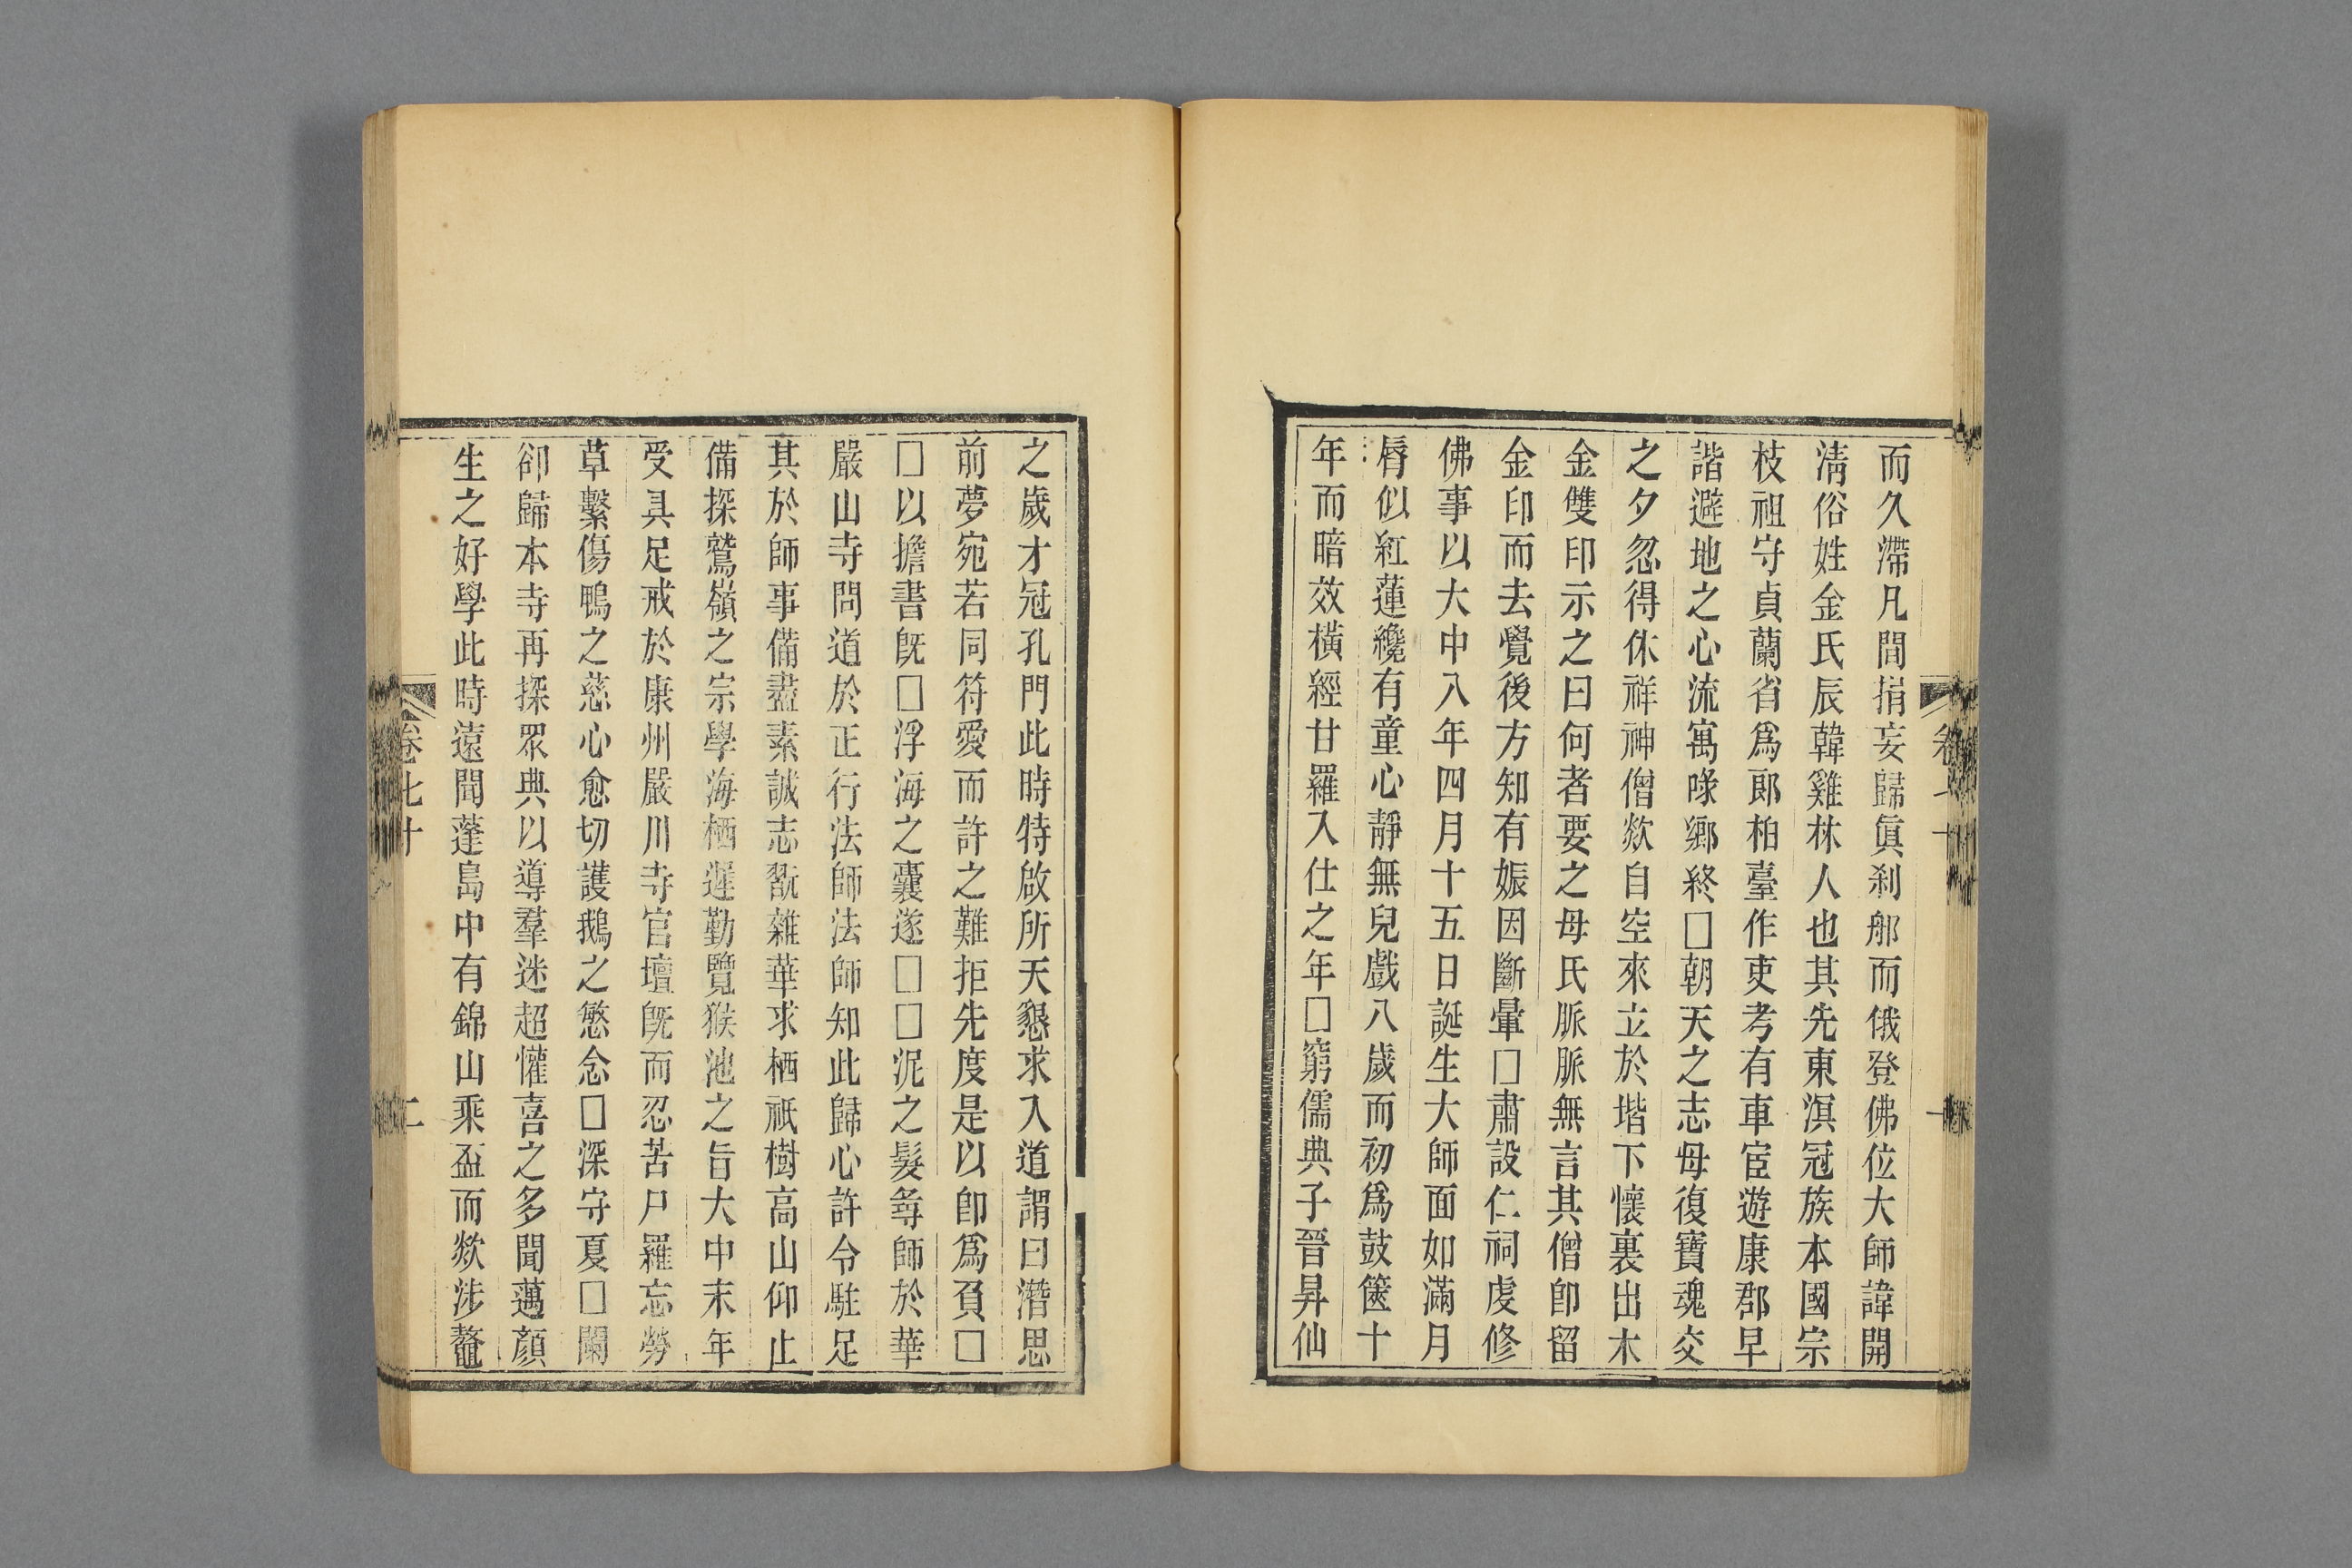 而久滯凡間捐妄歸眞刹那而俄登佛位大師諱開
淸俗姓金氏辰韓雞林人也其先東溟冠族本國宗
枝祖守貞蘭省爲郎柏臺作吏考有車宦遊康郡早
諧避地之心流寓喙鄉終□朝天之志母復寶魂交
之夕忽得休祥神僧欻自空來立於堦下懷裏出木
金雙印示之曰何者要之母氏脈脈無言其僧卽留
金印而去覺後方知有娠因斷暈□肅設仁祠虔修
佛事以大中八年四月十五日誕生大師面如滿月
脣似紅蓮纔有童心靜無兒戲八歲而初爲鼓篋十
年而暗效橫經甘羅入仕之年□窮儒典子晉昇仙
之歲才冠孔門此時特啟所天懇求入道謂曰潛思
前夢宛若同符愛而許之難拒先度是以卽爲負□
□以擔書旣□浮海之囊遂□□泥之髮尋師於華
嚴山寺問道於正行法師法師知此歸心許令駐足
其於師事備盡素誠志翫雜華求栖祇樹高山仰止
備探鷲嶺之宗學海栖遲勤覽猴池之旨大中末年
受具足戒於康州嚴川寺官壇旣而忍苦尸羅忘勞
草繫傷鴨之慈心愈切護鵝之慜念□深守夏□闌
卻歸本寺再探眾典以導羣迷超懽喜之多聞邁顏
生之好學此時遠聞蓬島中有錦山乘盃而欻涉鼇